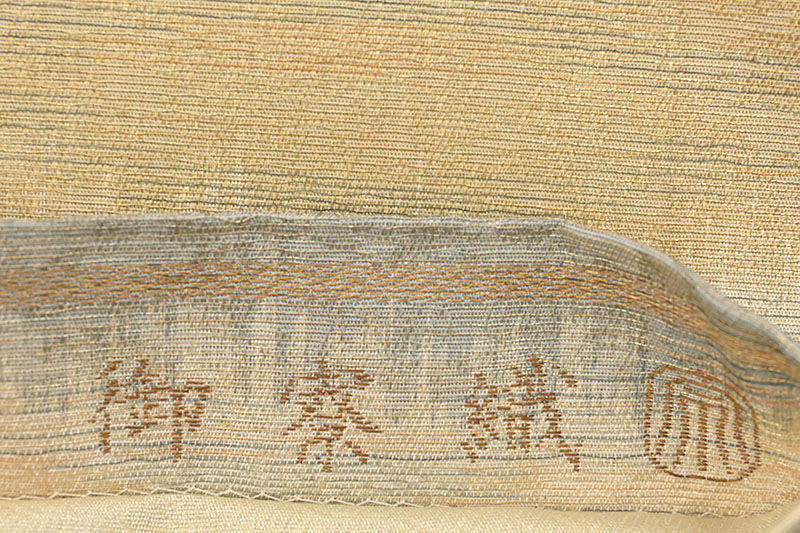 御寮織